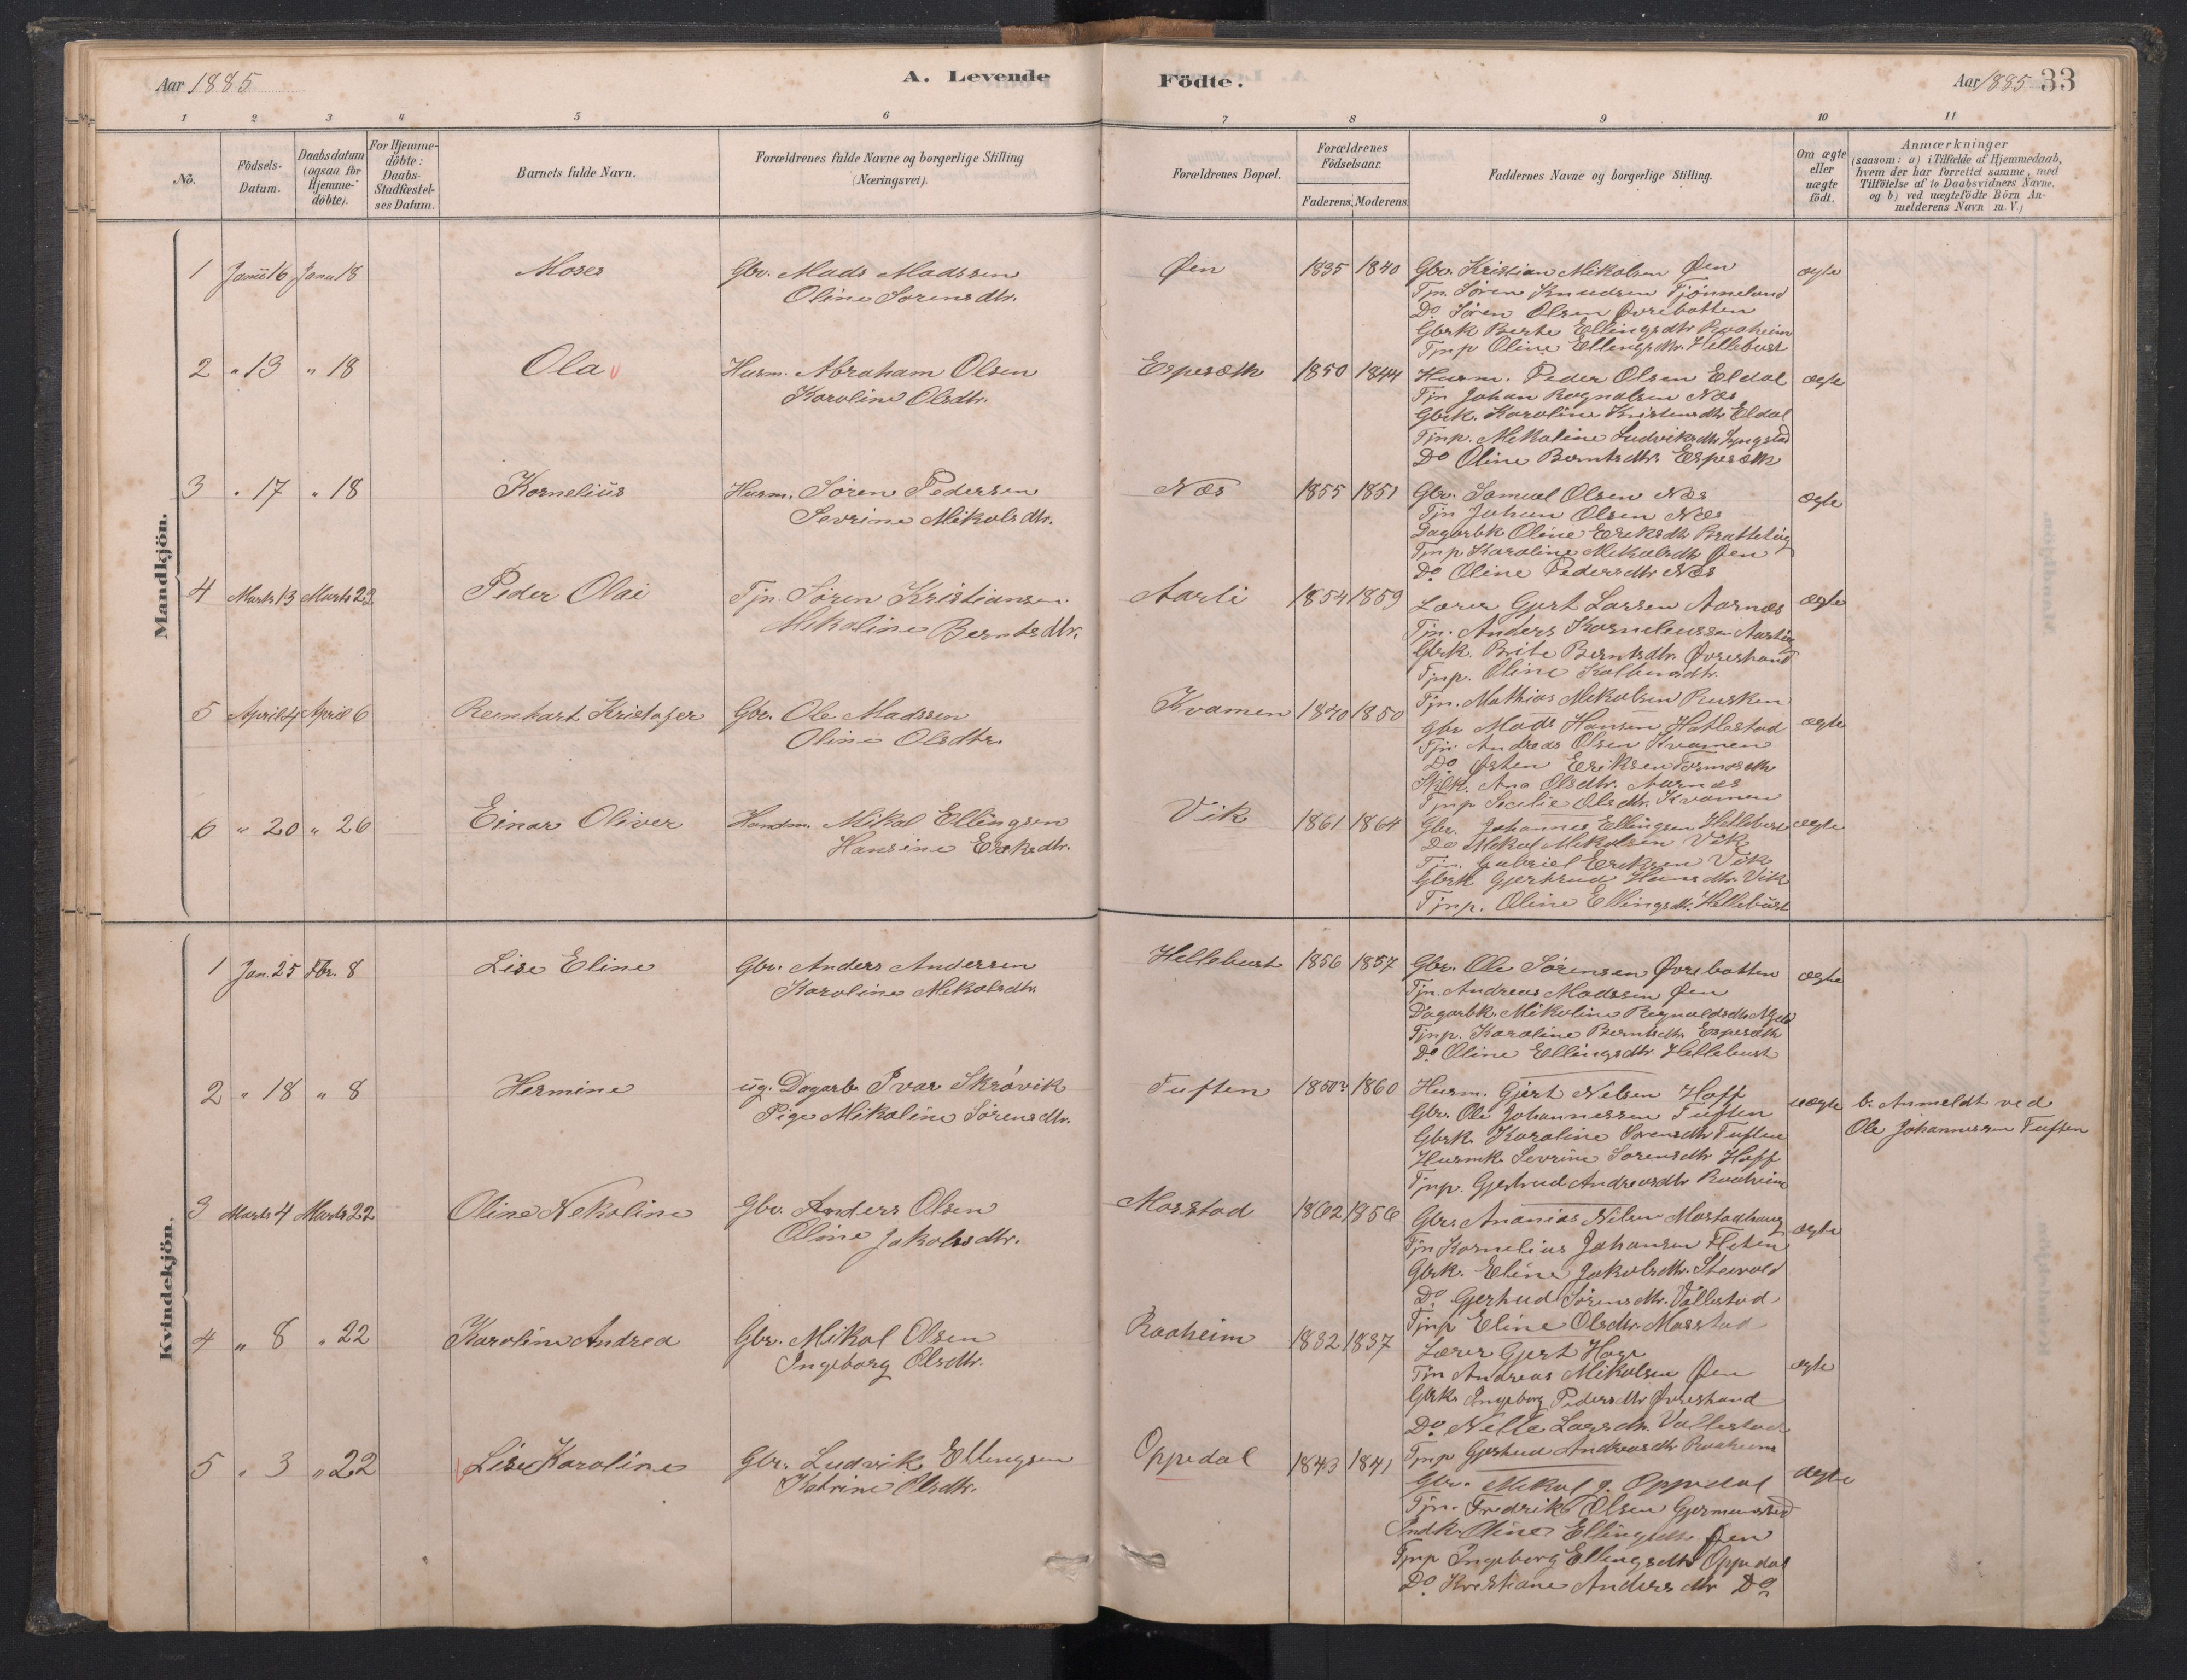 Aar 1885
A. Levende
Födte.
Aar 1885 33
1 2 3 4 5 6 7 8 9 10 11
No.
Födsels-Datum.
Daabsdatum (ogsaa for Hjemme-döbte).
For Hjemme-döbte: Daabs-Stadfæstel-ses Datum.
Barnets fulde Navn.
Forældrenes fulde Navne og borgerlige Stilling
(Næringsvei).
Forældrenes Bopæl.
Forældrenes Födselsaar.
Faderens. Moderens.
Faddernes Navne og borgerlige Stilling.
Om ægte eller uægte födt.
Anmærkninger
(saasom: a) i Tilfælde af Hjemmedaab,
hvem der har forrettet samme, med
Tilföielse af to Daabsvidners Navne,
og b) ved uægtefödte Börn An-
melderens Navn m. V.)
Mandkjön.
1 Janu 16 Janu 18 Moses Gbr. Mads Madssen Øen 1835 1840 Gbr. Kristian Mikalsen Øen ægte
Oline Sørensdtr.
Tjn. Søren Knudsen Tjønneland
Do Søren Olsen Øvrebotten
Gbrk Berte Ellingsdtr Raaheim
Tjnp Oline Ellingsdtr. Hellebust
2 " 13 " 18 Ola Husm. Abraham Olsen Espesæth 1850 1844 Husm. Peder Olsen Eldal ægte
Karoline Olsdtr.
Tjn Johan Rognalsen Næs
Gbrk. Karoline Kristensdtr Eldal
Tjnp. Mikaline Ludviksdtr
Do Oline Berntsdtr. Espesæth
3 " 17 " 18 Kornelius Husm. Søren Pedersen Næs 1855 1851 Gbr. Samuel Olsen Næs ægte
Sevrine Mikalsdtr.
Tjn Johan Olsen Næs
Dagarbk Oline Eriksdtr
Tjnp Karoline Mikalsdtr Øen
Do Oline Pedersdtr Næs
4 Marts 13 Marts 22 Peder Olai Tjn. Søren Kristiansen Aarli 1854 1859 Lærer Gjert Larsen Aarnæs ægte
Mikaline Berntsdtr.
Tjn. Anders Korneliussen
Gbrk. Brite Berntsdtr. Øvrestrand
Tjnp. Oline
5 April 4 April 6 Reinhart Kristofer Gbr. Ole Madssen Kvamen 1840 1850 Tjn. Mathias Mikalsen Rusken ægte
Oline Olsdtr.
Gbr Mads Hansen Hatlestad
Tjn. Andreas Olsen Kvamen
Do Østen Eriksen
Ana Olsdtr. Aarnæs
Tjnp Sicilie Olsdtr. Kvamen
6 " 20 " 26 Einar Oliver Handm. Mikal Ellingsen Vik 1861 1864 Gbr. Johannes Ellingsen Hellebust ægte
Hansine Eriksdtr.
Do Mikal Mikalsen Vik
Tjn. Gabriel Eriksen Vik
Gbrk Gjertrud Hansdtr. Vik
Tjnp. Oline Ellingsdtr. Hellebust
Kvindekjön.
1 Jan. 25 Fbr. 8 Lise Eline Gbr. Anders Andersen Hellebust 1856 1857 Gbr. Ole Sørensen Øvrebotten ægte
Karoline Mikalsdtr.
Tjn. Andreas Madssen Øen
Dagarbk. Mikaline Rognaldsdtr
Tjnp. Karoline Berntsdtr Espesæth
Do Oline Ellingsdtr Hellebust
2 " 18 " 8 Hermine ug. Dagarb. Ivar Skrøvik Tuften 1850? 1860 Husm. Gjert Nilsen Hoff uægte b. Anmeldt ved
Pige Mikaline Sørensdtr.
Gbr. Ole Johannessen Tuften
Ole Johannessen Tuften
Gbrk. Karoline Sørensdtr Tuften
Husmk. Sevrine Sørensdtr Hoff
Tjnp. Gjertrud Andreasdtr Raaheim
3 Marts 4 Marts 22 Oline Nekoline Gbr. Anders Olsen Masstad 1862 1856 Gbr. Ananias Nilsen Mastadhaug ægte
Oline Jakobsdtr.
Tjn Kornelius Johansen Fleten
Gbrk. Eline Jakobsdtr.
Do Gjertrud Sørensdtr. Vallestad
Tjnp Eline Olsdtr. Masstad
4 " 8 " 22 Karoline Andrea Gbr. Mikal Olsen Raaheim 1832 1837 Lærer Gjert Hage ægte
Ingeborg Olsdtr.
Tjn Andreas Mikalsen Øen
Gbrk. Ingeborg Pedersdtr Øvrestrand
Do Nille Larsdtr. Vallestad
Tjnp Gjertrud Andreasdtr Raaheim
5 " 3 " 22 Lise Karoline Gbr. Ludvik Ellingsen Oppedal 1843 1841 Gbr. Mikal J. Oppedal ægte
Katrine Olsdtr.
Tjn. Fredrik Olsen
Oline Ellingsdtr. Øen
Tjnp Ingeborg Ellingsdtr Oppedal
Do Kristiane Andersdtr Do